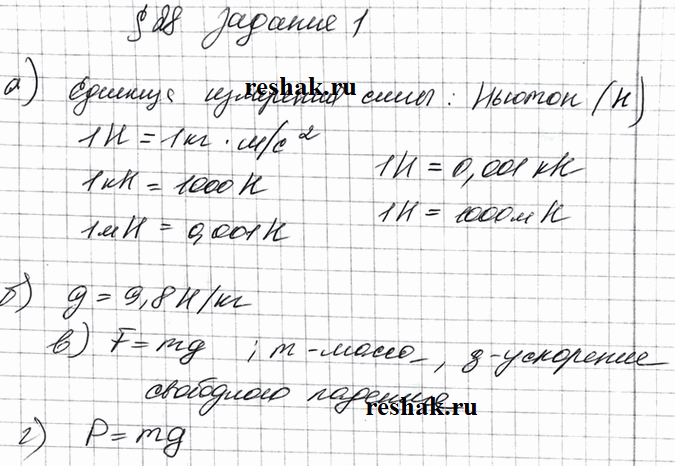 § 28 Задание 1
а) Единица измерения силы: Ньютон (Н)
reshak.ru
1Н = 1кг · м/с²
1Н = 0,001 кН
1кН = 1000Н
1Н = 1000мН
1мН = 0,001Н
б) g = 9,8Н/кг
в) F = mg ; m - масса, g - ускорение
свободного падения
reshak.ru
г) P = mg